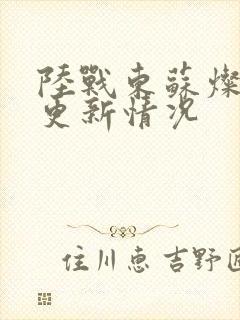 陸戰東蘇燦
更新情况
住川恵吉野匠